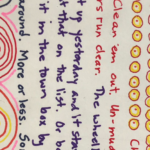 Clean 'em out Un-muck
rs run clear. The wheel
t up yesterday and it sta
t that on the list. Or b
it in the town box by
around. More or less. Son